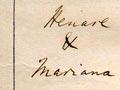 Henare
&
Mariana